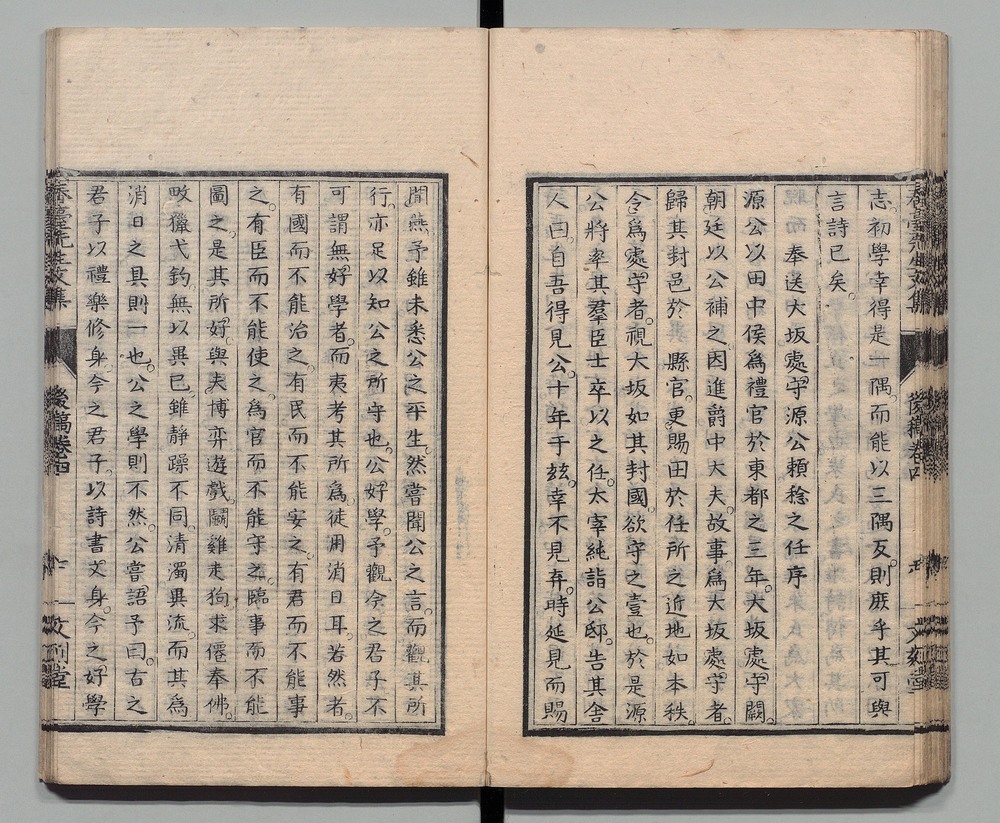 志初學幸得是一隅而能以三隅反則庶乎其可與
言詩已矣
奉送大坂處守源公賴稔之任序
源公以田中侯為禮官於東都之三年大坂處守闕
朝廷以公補之因進爵中大夫故事為大坂處守者
歸其封邑於縣官更賜田於任所之近地如本秩
令為處守者視大坂如其封國欲守之壹也於是源
公將率其羣臣士卒以之任太宰純詣公邸告其舍
人曰自吾得見公十年于茲幸不見弃時延見而賜
間燕予雖未悉公之平生然嘗聞公之言而觀其所
行亦足以知公之所守也公好學予觀今之君子不
可謂無好學者而夷考其所為徒用消日耳若然者
有國而不能治之有民而不能安之有君而不能事
之有臣而不能使之為官而不能守之臨事而不能
圖之是其所好與夫博弈遊戲鬭雞走狗求僊奉佛
畋獵弋釣無以異已雖靜躁不同清濁異流而其為
消日之具則一也公之學則不然公嘗語予曰古之
君子以禮樂修身今之君子以詩書文身今之好學
春臺先生文集
後稿卷四